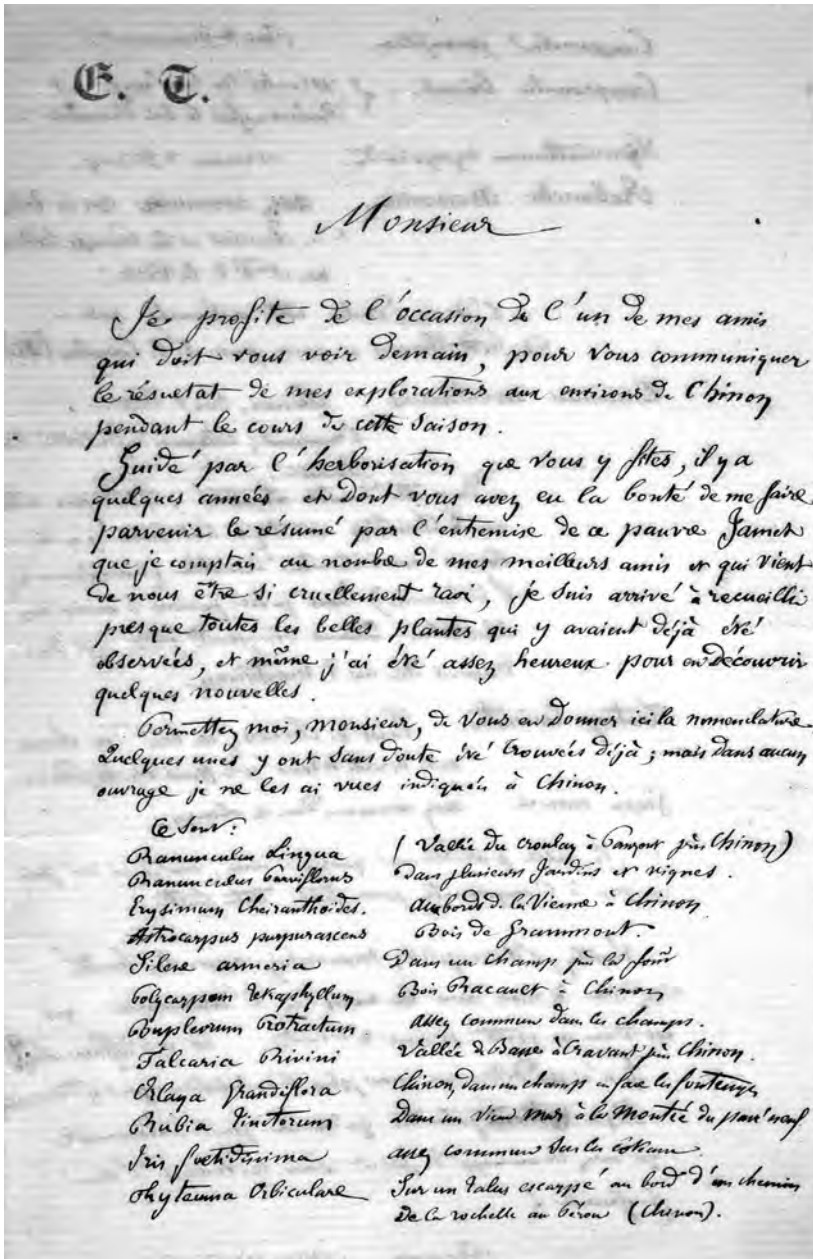 E. T.
Monsieur
Je profite de l'occasion de l'un de mes amis
qui doit vous voir demain, pour vous communiquer
le résultat de mes explorations aux environs de Chinon
pendant le cours de cette saison.
Guidé par l'herborisation que vous y fîtes, il y a
quelques années et dont vous avez eu la bonté de me faire
parvenir le résumé par l'entremise de ce pauvre Jamet
que je comptais au nombre de mes meilleurs amis et qui vient
de nous être si cruellement ravi, je suis arrivé à recueillir
presque toutes les belles plantes qui y avaient déjà été
observées, et même j'ai été assez heureux pour en découvrir
quelques nouvelles.
Permettez moi, monsieur, de vous en donner ici la nomenclature.
Quelques unes y ont sans doute été trouvées déjà ; mais dans aucun
ouvrage je ne les ai vues indiquées à Chinon.
Ce sont :
Ranunculus Lingua (Vallée du croulay à Panzout près Chinon)
Ranunculus Parviflorus Dans plusieurs Jardins et vignes.
Erysimum Cheiranthoïdes. Aux bords de la Vienne à Chinon
Astrocarpus purpurascens Bois de Grammont.
Silene armeria Dans un champ près la forêt
Polycarpom tetraphyllum Bois Racault à Chinon
Bouplevrum Protractum. assez commun dans les champs.
Falcaria Rivini Vallée de Basse à Cravant près Chinon.
Orlaya Grandiflora Chinon, dans un champ en face les fontenys
Rubia Tinctorum Dans un vieux mur à la Montée du pavé neuf
Iris foetidissima assez commun sur les côteaux
Phyteuma Orbiculare Sur un talus escarpé au bord d'un chemin
De la rochelle au Pérou (Chinon).